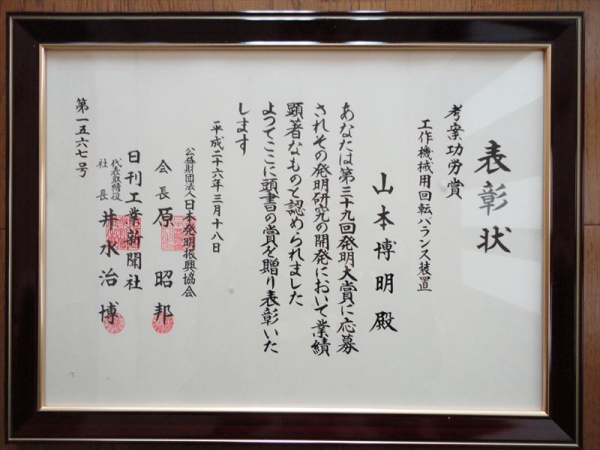 表彰状
考案功労賞
工作機械用回転バランス装置
山本博明殿
あなたは第三十九回発明大賞に応募
されその発明研究の開発において業績
顕著なものと認められました
よつてここに頭書の賞を贈り表彰いた
します
平成二十六年三月十八日
公益財団法人日本発明振興協会
会長 原昭邦
日刊工業新聞社
代表取締役
社長 井水治博
第一五六七号